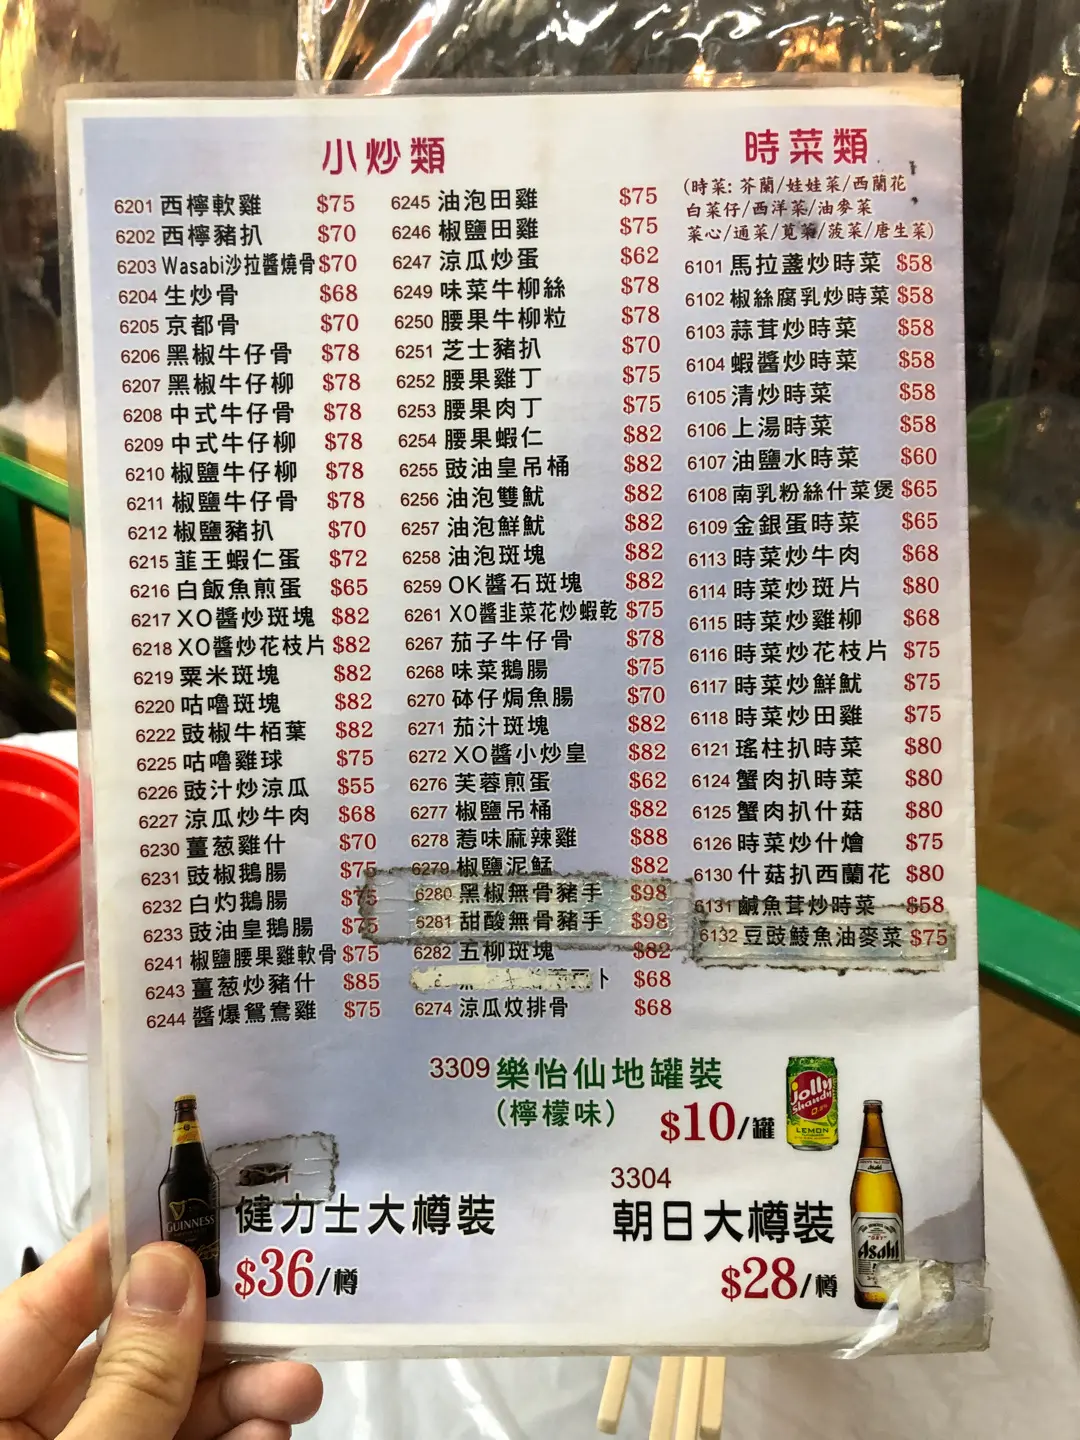 小炒類
6201 西檸軟雞 $75
6202 西檸豬扒 $70
6203 Wasabi沙拉醬燒骨 $70
6204 生炒骨 $68
6205 京都骨 $70
6206 黑椒牛仔骨 $78
6207 黑椒牛仔柳 $78
6208 中式牛仔骨 $78
6209 中式牛仔柳 $78
6210 椒鹽牛仔柳 $78
6211 椒鹽牛仔骨 $78
6212 椒鹽豬扒 $70
6215 韮王蝦仁蛋 $72
6216 白飯魚煎蛋 $65
6217 XO醬炒斑塊 $82
6218 XO醬炒花枝片 $82
6219 粟米斑塊 $82
6220 咕嚕斑塊 $82
6222 豉椒牛栢葉 $82
6225 咕嚕雞球 $75
6226 豉汁炒涼瓜 $55
6227 涼瓜炒牛肉 $68
6230 薑葱雞什 $70
6231 豉椒鵝腸 $75
6232 白灼鵝腸 $75
6233 豉油皇鵝腸 $75
6241 椒鹽腰果雞軟骨 $75
6243 薑葱炒豬什 $85
6244 醬爆鴛鴦雞 $75
6245 油泡田雞 $75
6246 椒鹽田雞 $75
6247 涼瓜炒蛋 $62
6249 味菜牛柳絲 $78
6250 腰果牛柳粒 $78
6251 芝士豬扒 $70
6252 腰果雞丁 $75
6253 腰果肉丁 $75
6254 腰果蝦仁 $82
6255 豉油皇吊桶 $82
6256 油泡雙魷 $82
6257 油泡鮮魷 $82
6258 油泡斑塊 $82
6259 OK醬石斑塊 $82
6261 XO醬韭菜花炒蝦乾 $75
6267 茄子牛仔骨 $78
6268 味菜鵝腸 $75
6270 砵仔焗魚腸 $70
6271 茄汁斑塊 $82
6272 XO醬小炒皇 $82
6276 芙蓉煎蛋 $62
6277 椒鹽吊桶 $82
6278 惹味麻辣雞 $88
6279 椒鹽泥鯭 $82
6280 黑椒無骨豬手 $98
6281 甜酸無骨豬手 $98
6282 五柳斑塊 $82
卜 $68
6274 涼瓜炆排骨 $68
時菜類
(時菜: 芥蘭/娃娃菜/西蘭花
白菜仔/西洋菜/油麥菜
菜心/通菜/莧菜/菠菜/唐生菜)
6101 馬拉盞炒時菜 $58
6102 椒絲腐乳炒時菜 $58
6103 蒜茸炒時菜 $58
6104 蝦醬炒時菜 $58
6105 清炒時菜 $58
6106 上湯時菜 $58
6107 油鹽水時菜 $60
6108 南乳粉絲什菜煲 $65
6109 金銀蛋時菜 $65
6113 時菜炒牛肉 $68
6114 時菜炒斑片 $80
6115 時菜炒雞柳 $68
6116 時菜炒花枝片 $75
6117 時菜炒鮮魷 $75
6118 時菜炒田雞 $75
6121 瑤柱扒時菜 $80
6124 蟹肉扒時菜 $80
6125 蟹肉扒什菇 $80
6126 時菜炒什燴 $75
6130 什菇扒西蘭花 $80
6131 鹹魚茸炒時菜 $58
6132 豆豉鯪魚油麥菜 $75
3309 樂怡仙地罐裝
(檸檬味)
$10/罐
Jolly
Shandy
LEMON
GUINNESS
健力士大樽裝
$36/樽
3304
朝日大樽裝
$28/樽
Asahi